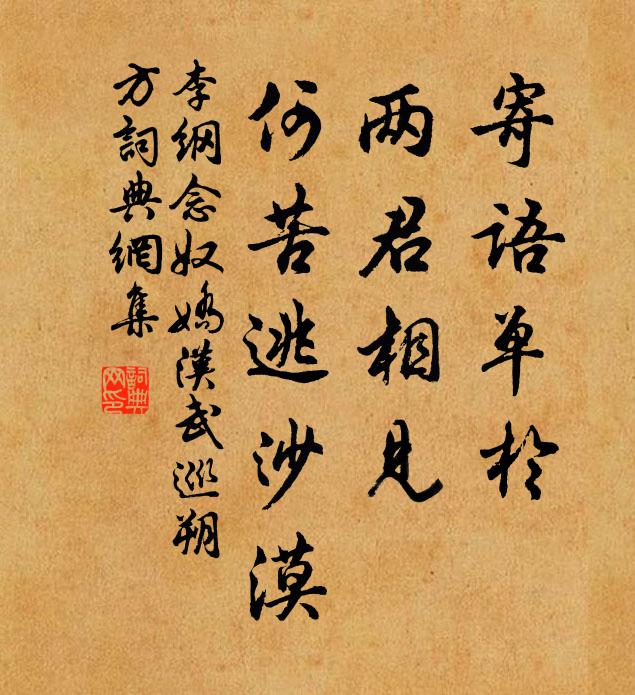 寄语单於
两君相见
何苦逃沙漠
李纲念奴娇汉武巡朔
方詞典網集
詞典
网印